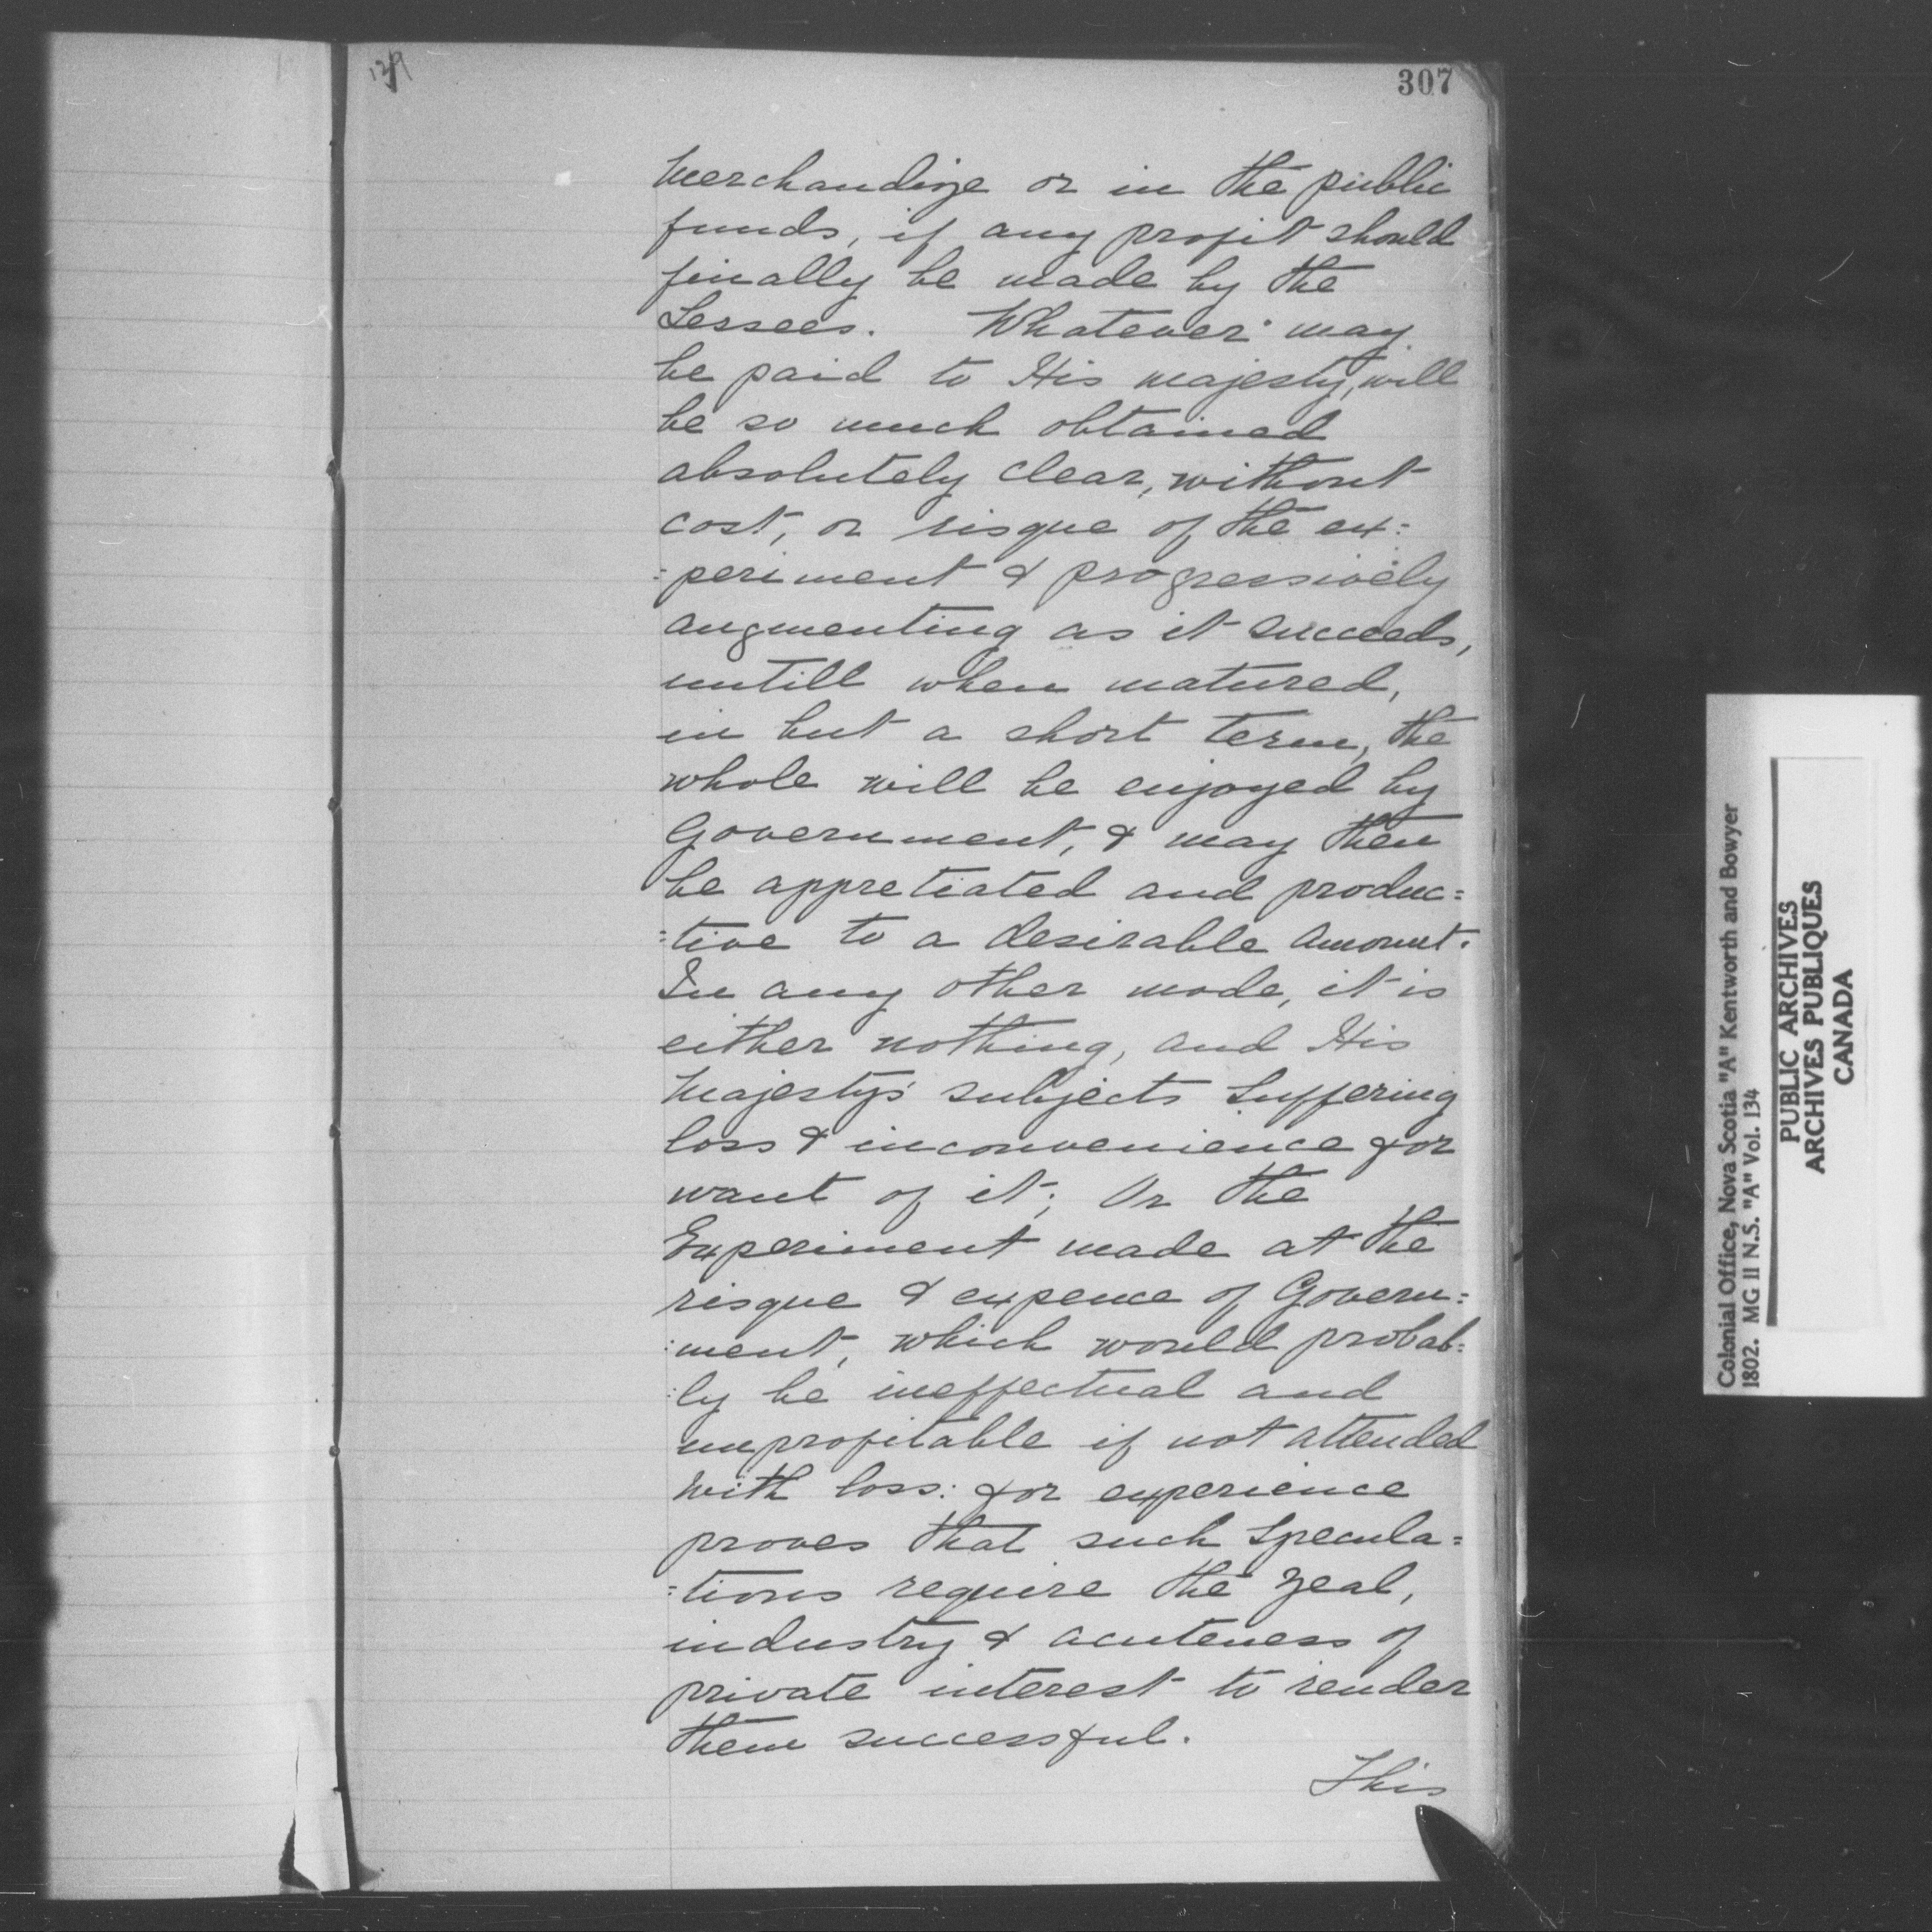 129
307
Merchandize or in the public
funds, if any profit should
finally be made by the
Lessees. Whatever may
be paid to His majesty, will
be so much obtained
absolutely clear, without
cost, or risque of the ex=
=periment & progressively
augmenting as it succeeds,
untill when matured,
in but a short term, the
whole will be enjoyed by
Government, & may then
be appretiated and produc=
=tive to a desirable amount.
In any other mode, it is
either nothing, and His
Majesty's subjects suffering
loss & inconvenience for
want of it; Or the
Experiment made at the
risque & expence of Govern=
=ment, which would probab=
=ly be ineffectual and
unprofitable if not attended
with loss: for experience
proves that such specula=
=tions require the zeal,
industry & acuteness of
private interest to render
them successful.
This
Colonial Office, Nova Scotia "A" Kentworth and Bowyer
1802. MG 11 N.S. "A" Vol. 134
PUBLIC ARCHIVES
ARCHIVES PUBLIQUES
CANADA